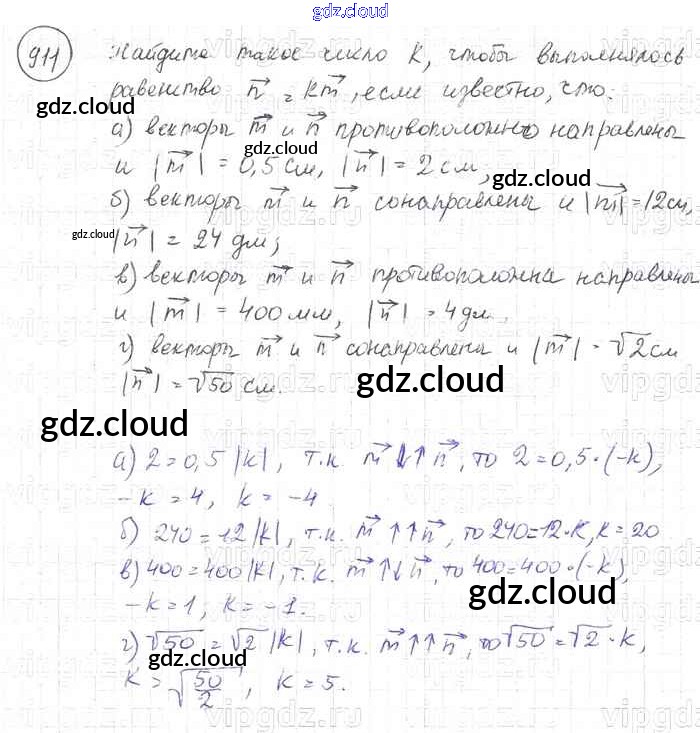 gdz.cloud
911 Найдите такое число k, чтобы выполнялось
равенство n⃗ = km⃗, если известно, что:
gdz.cloud
а) векторы m⃗ и n⃗ противоположно направлены
gdz.cloud
и |m⃗| = 0,5 см, |n⃗| = 2 см;
gdz.cloud
б) векторы m⃗ и n⃗ сонаправлены и |m⃗| = 12см,
gdz.cloud
|n⃗| = 24 дм;
в) векторы m⃗ и n⃗ противоположна направлены
и |m⃗| = 400 мм, |n⃗| = 4дм.
г) векторы m⃗ и n⃗ сонаправлена и |m⃗| = √2 см
|n⃗| = √50 см.
gdz.cloud
gdz.cloud
а) 2 = 0,5 |k|, т.к. m⃗ ↓↑ n⃗, то 2 = 0,5·(-k),
-k = 4, k = -4
б) 240 = 12 |k|, т.к. m⃗ ↑↑ n⃗, то 240=12·k, k = 20
в) 400 = 400 |k|, т.к. m⃗ ↑↓ n⃗, то 400=400·(-k),
gdz.cloud
-k = 1; k = -1.
г) √50 = √2 |k|, т.к. m⃗ ↑↑ n⃗, то √50 = √2 · k,
gdz.cloud
k = √50/2, k = 5.
gdz.cloud